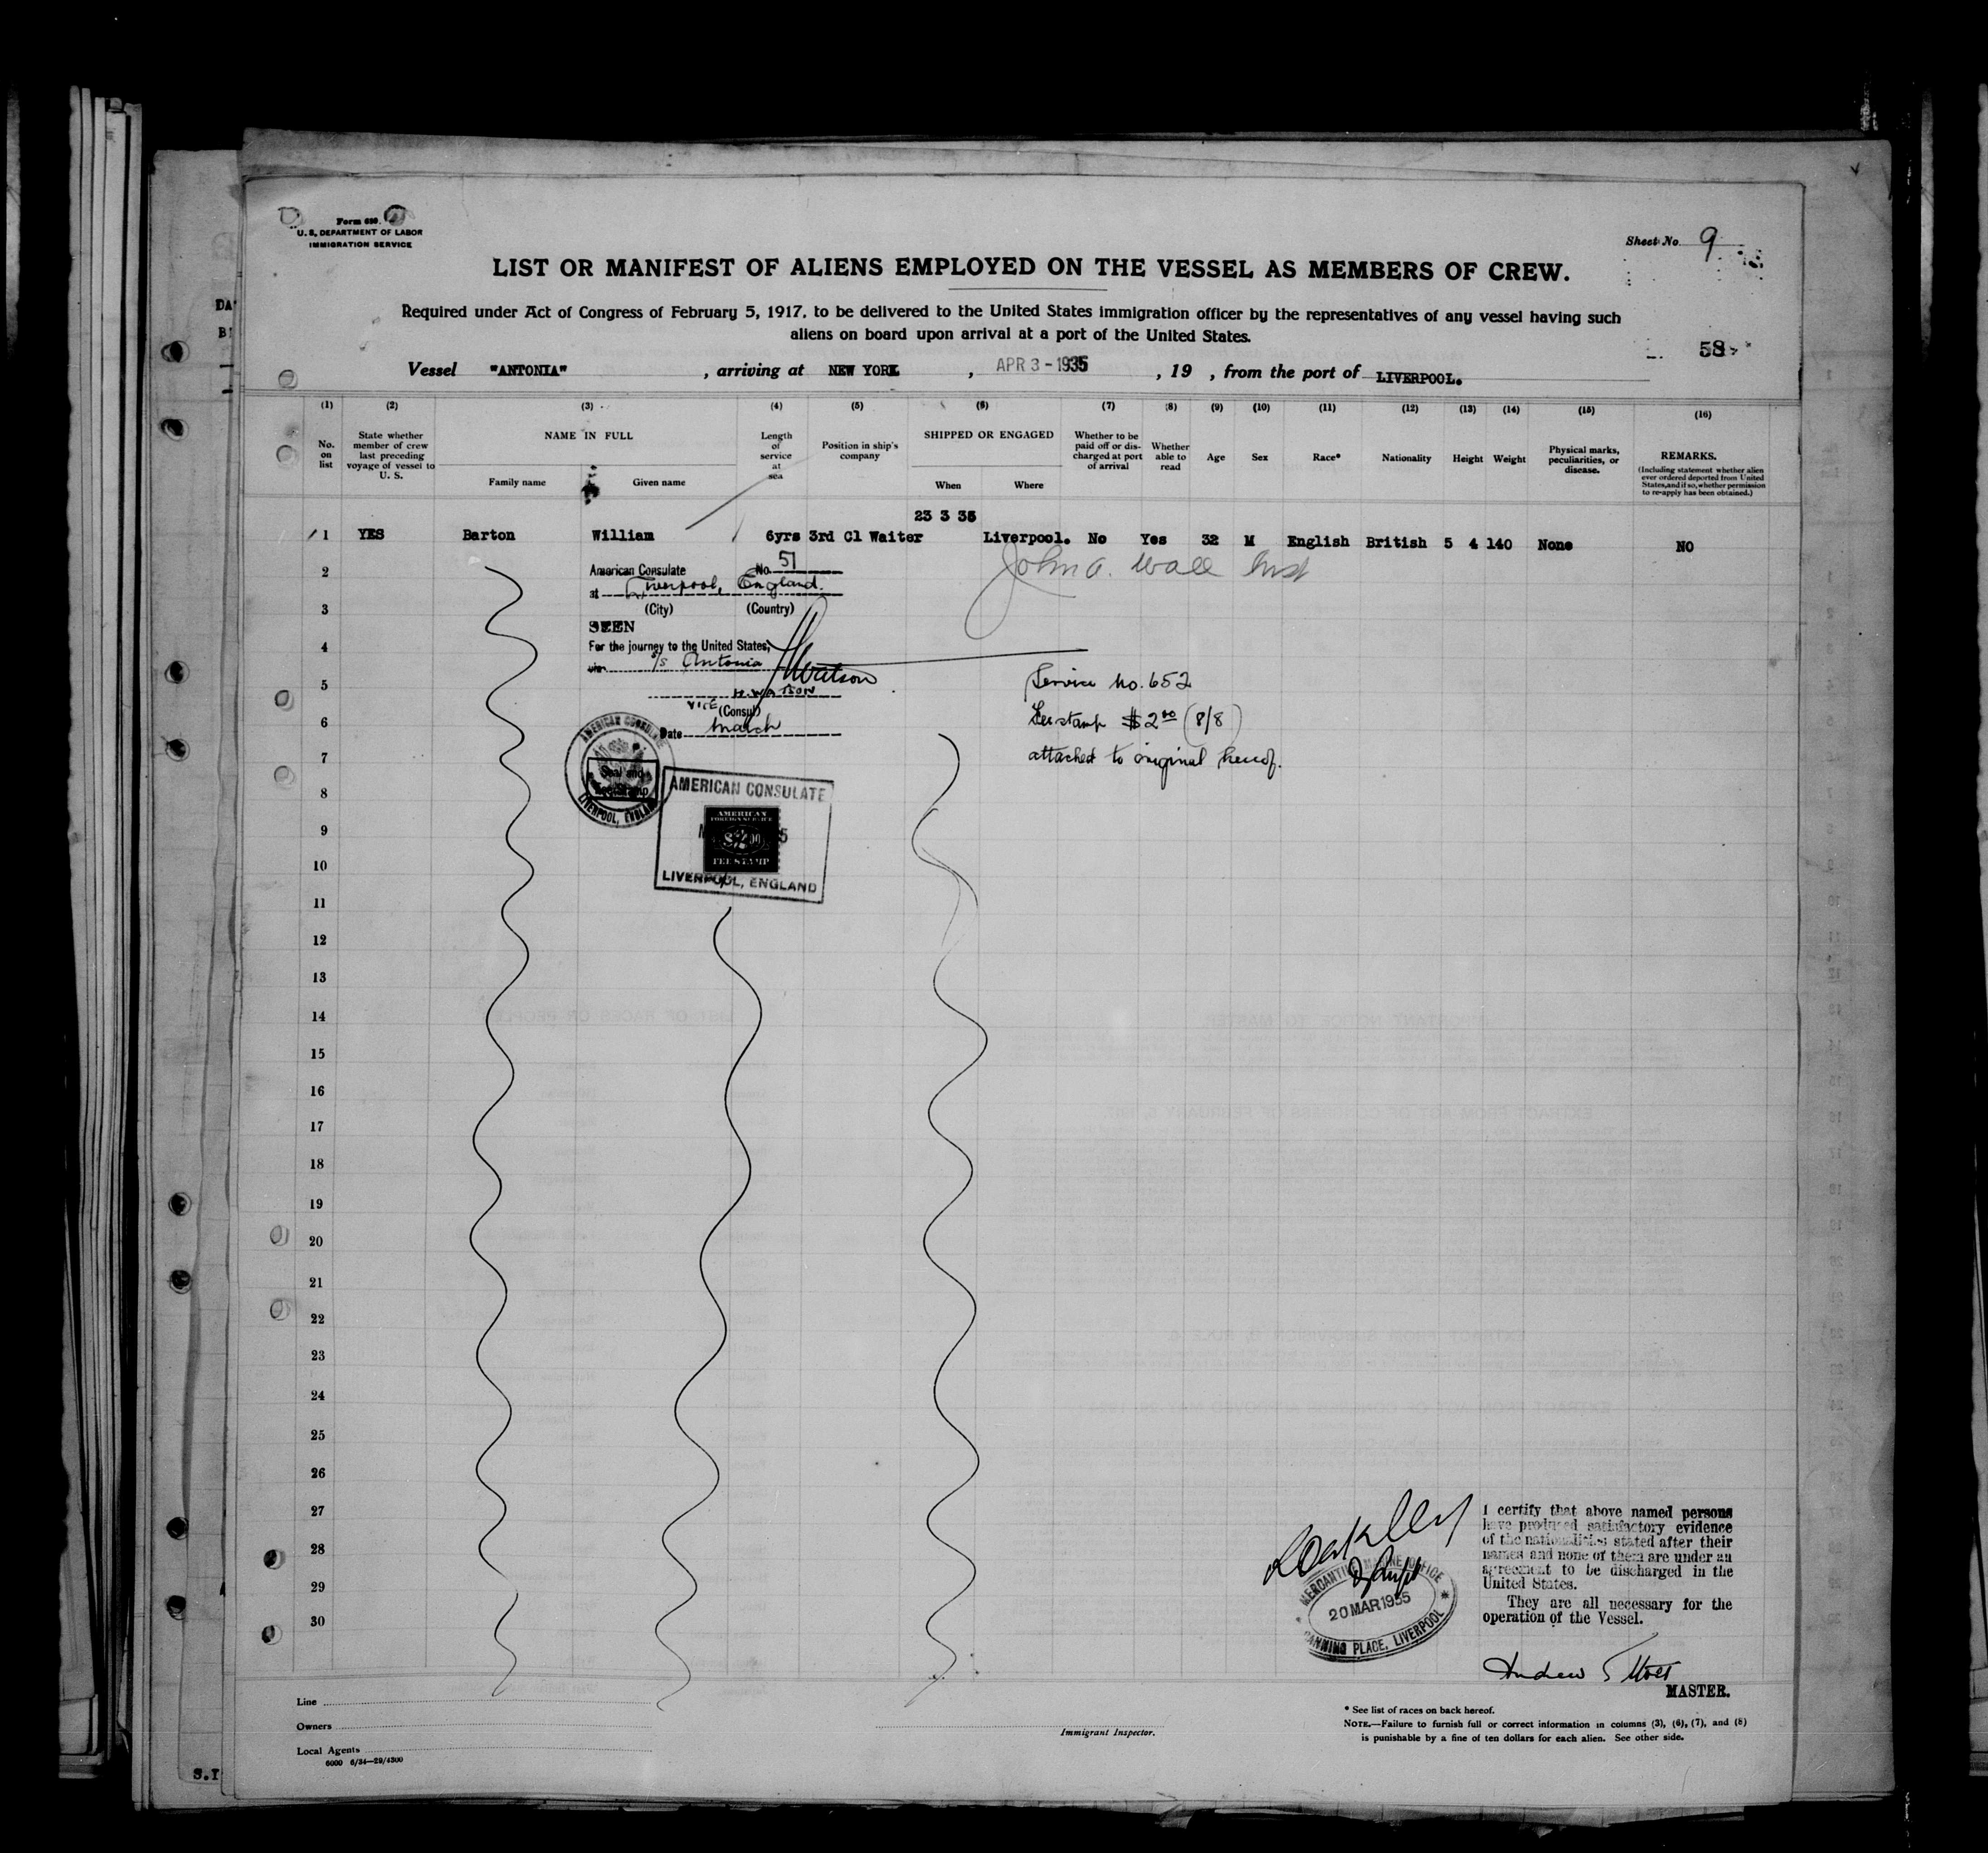 Form 680
U. S. DEPARTMENT OF LABOR
IMMIGRATION SERVICE
Sheet No. 9
LIST OR MANIFEST OF ALIENS EMPLOYED ON THE VESSEL AS MEMBERS OF CREW.
Required under Act of Congress of February 5, 1917, to be delivered to the United States immigration officer by the representatives of any vessel having such
aliens on board upon arrival at a port of the United States.
58
Vessel "ANTONIA" , arriving at NEW YORK , APR 3 - 1935 , 19 , from the port of LIVERPOOL.
(1) (2) (3) (4) (5) (6) (7) (8) (9) (10) (11) (12) (13) (14) (15) (16)
No. on list
State whether member of crew last preceding voyage of vessel to U. S.
NAME IN FULL
Family name Given name
Length of service at sea
Position in ship's company
SHIPPED OR ENGAGED
When Where
Whether to be paid off or discharged at port of arrival
Whether able to read
Age Sex Race* Nationality Height Weight
Physical marks, peculiarities, or disease.
REMARKS.
(Including statement whether alien ever ordered deported from United States, and if so, whether permission to re-apply has been obtained.)
23 3 35
1 YES Barton William 6yrs 3rd Cl Waiter Liverpool. No Yes 32 M English British 5 4 140 None NO
John A. Wall Insp
2
3
4
5
6
7
8
9
10
11
12
13
14
15
16
17
18
19
20
21
22
23
24
25
26
27
28
29
30
American Consulate No. 51
at Liverpool, England.
(City) (Country)
SEEN
For the journey to the United States,
via s/s Antonia
H Watson
H. WATSON
VICE (Consul)
Date March
AMERICAN CONSULATE
Seal and
Fee Stamp
LIVERPOOL, ENGLAND
AMERICAN CONSULATE
AMERICAN
FOREIGN SERVICE
$2.00
FEE STAMP
LIVERPOOL, ENGLAND
Service No. 652
Fee stamp $2.00 (8/8)
attached to original hereof.
MERCANTILE MARINE OFFICE
20 MAR 1935
CANNING PLACE, LIVERPOOL
I certify that above named persons
have produced satisfactory evidence
of the nationalities stated after their
names and none of them are under an
agreement to be discharged in the
United States.
They are all necessary for the
operation of the Vessel.
Andrew
MASTER.
Line
Owners
Local Agents
6000 6/34—29/4300
Immigrant Inspector.
* See list of races on back hereof.
NOTE.—Failure to furnish full or correct information in columns (3), (6), (7), and (8)
is punishable by a fine of ten dollars for each alien. See other side.